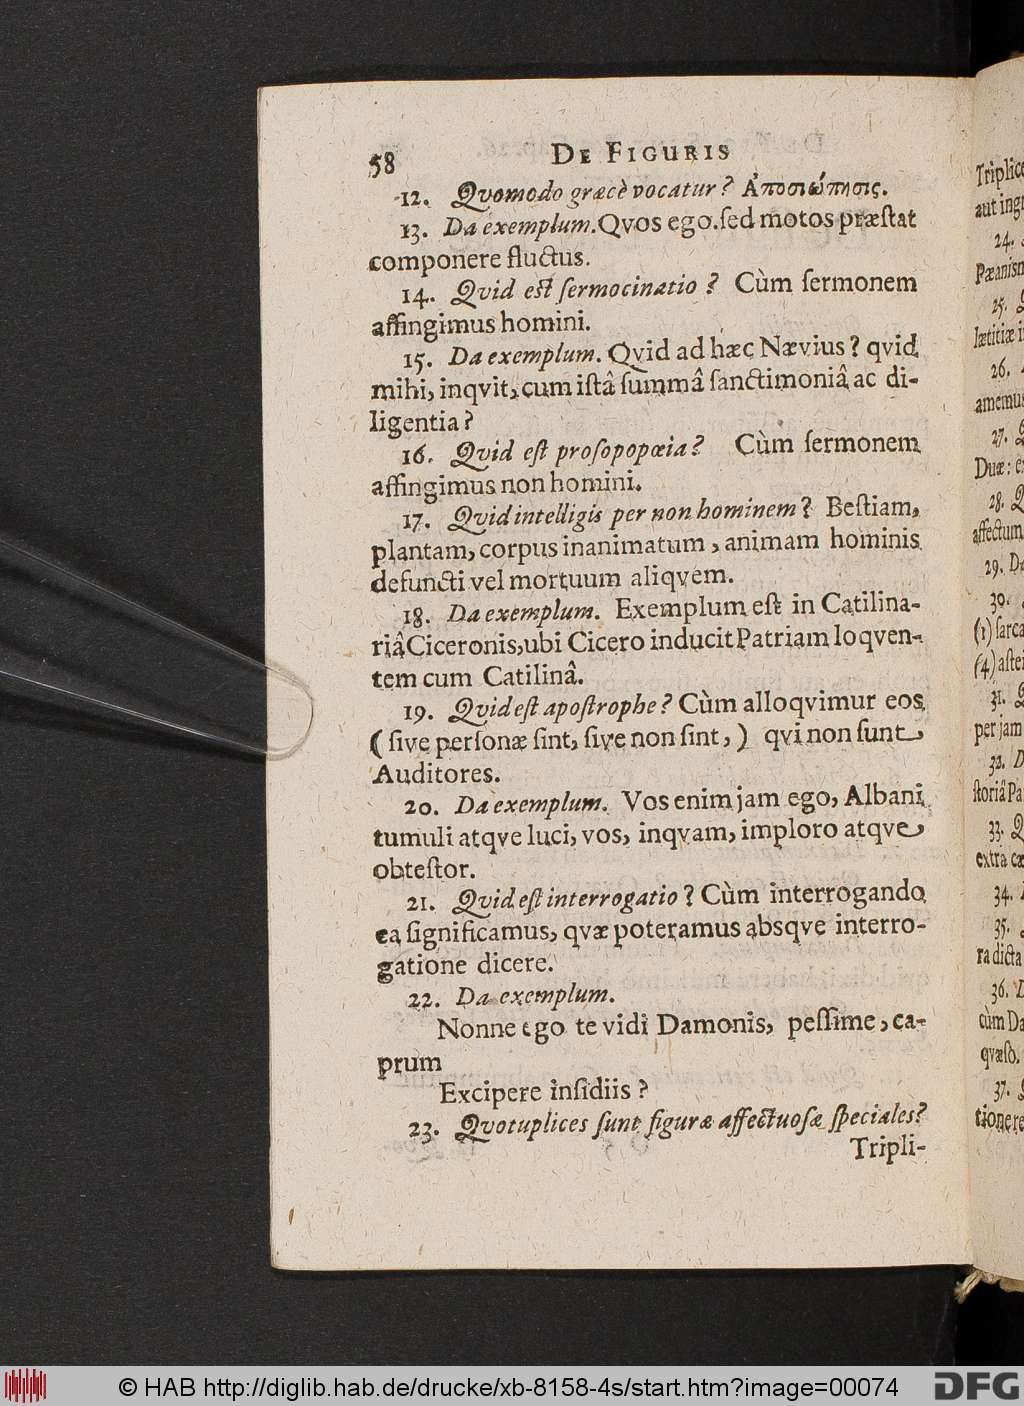 58 DE FIGURIS
12. Qvomodo græcè vocatur? Ἀποσιώπησις.
13. Da exemplum. Qvos ego. sed motos præſtat
componere fluctus.
14. Qvid eſt ſermocinatio? Cùm ſermonem
affingimus homini.
15. Da exemplum. Qvid ad hæc Nævius? qvid
mihi, inqvit, cum iſtâ ſummâ ſanctimoniâ ac di-
ligentia?
16. Qvid eſt proſopopœia? Cùm ſermonem
affingimus non homini.
17. Qvid intelligis per non hominem? Beſtiam,
plantam, corpus inanimatum, animam hominis
defuncti vel mortuum aliqvem.
18. Da exemplum. Exemplum eſt in Catilina-
riâ Ciceronis, ubi Cicero inducit Patriam loqven-
tem cum Catilinâ.
19. Qvid eſt apoſtrophe? Cùm alloqvimur eos
(ſive perſonæ ſint, ſive non ſint,) qvi non ſunt
Auditores.
20. Da exemplum. Vos enim jam ego, Albani
tumuli atqve luci, vos, inqvam, imploro atqve
obteſtor.
21. Qvid eſt interrogatio? Cùm interrogando
ea ſignificamus, qvæ poteramus absqve interro-
gatione dicere.
22. Da exemplum.
Nonne ego te vidi Damonis, peſſime, ca-
prum
Excipere inſidiis?
23. Qvotuplices ſunt figuræ affectuoſæ ſpeciales?
Tripli-
Triplice
aut ingr
24.
Pæanism
25.
lætitiæ i
26.
amemus
27. Q
Duæ: e
28. Q
affectum
29. Da
30.
(1) ſarca
(4) aſtei
31. Q
per jam
32. D
ſtoriâ Pa
33. Q
extra cæ
34.
35.
ra dicta
36. D
cùm Da
qvæſo.
37.
tione re
© HAB http://diglib.hab.de/drucke/xb-8158-4s/start.htm?image=00074
DFG